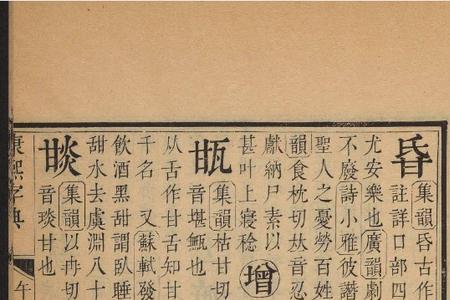 集韻昏古作
註詳口部四
尤安樂也廣韻劇
不廢詩小雅彼譖
聖人之憂勞百姓
韻食枕切𠀤音忍
獻納尸素以
甚叶上寢稔
增
集韻枯甘切
音堪甒也
从舌作甘舌知甘
千名 又蘇軾發
飲酒黑甜謂臥睡
甜水去虞淵八十
集韻以冉切
音琰甘也
康熙字典
午